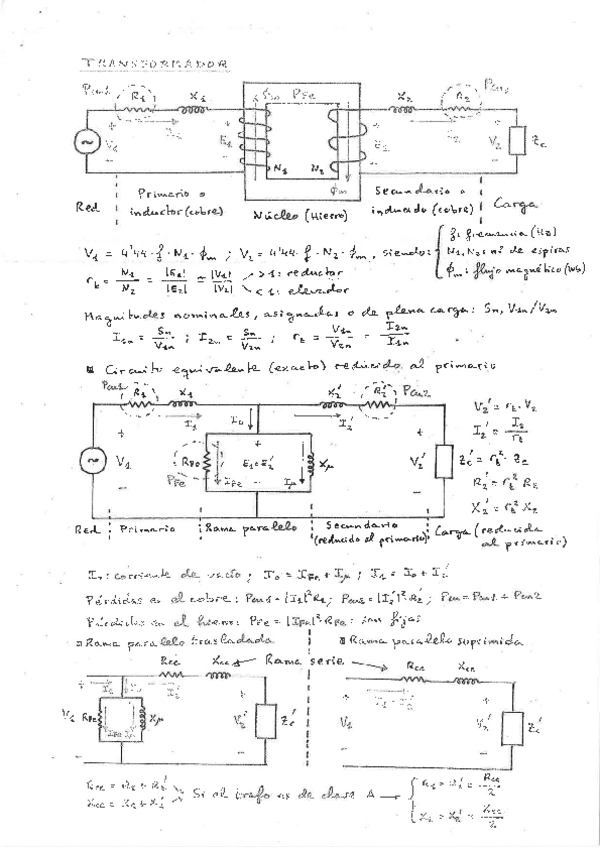 TRANSFORMADOR
Pcu1 R1 X1 ϕm PFe X2 R2 Pcu2
V1 I1 E1 N1 N2 E2 I2 V2 Zc
ϕm
Red Primario o inductor (cobre) Núcleo (Hierro) Secundario o inducido (cobre) Carga
V1 = 4'44 · f · N1 · ϕm ; V2 = 4'44 · f · N2 · ϕm , siendo: f: frecuencia (Hz)
N1, N2: nº de espiras
ϕm: flujo magnético (Wb)
rt = N1/N2 = |E1|/|E2| ≃ |V1|/|V2| >1: reductor
<1: elevador
Magnitudes nominales, asignadas o de plena carga: Sn, V1n/V2n
I1n = Sn/V1n ; I2n = Sn/V2n ; rt = V1n/V2n = I2n/I1n
Circuito equivalente (exacto) reducido al primario
Pcu1 R1 X1 X2' R2' Pcu2
I1 I0 I2'
V1 RFe PFe IFe E1=E2' Iμ Xμ V2' Zc'
V2' = rt · V2
I2' = I2/rt
Zc' = rt² · Zc
R2' = rt² R2
X2' = rt² X2
Red Primario Rama paralelo Secundario (reducido al primario) Carga (reducida al primario)
I0: corriente de vacío ; I0 = IFe + Iμ ; I1 = I0 + I2'
Pérdidas en el cobre: Pcu1 = |I1|² R1 ; Pcu2 = |I2'|² R2' ; Pcu = Pcu1 + Pcu2
Pérdidas en el hierro: PFe = |IFe|² · RFe : son fijas
Rama paralelo trasladada Rama paralelo suprimida
Rcc Xcc Rama serie Rcc Xcc
I1 I0 I2' I1 = I2'
V1 RFe Xμ IFe Iμ V2' Zc' V1 V2' Zc'
Rcc = R1 + R2'
Xcc = X1 + X2'
Si el trafo es de clase A
R1 = R2' = Rcc/2
X1 = X2' = Xcc/2